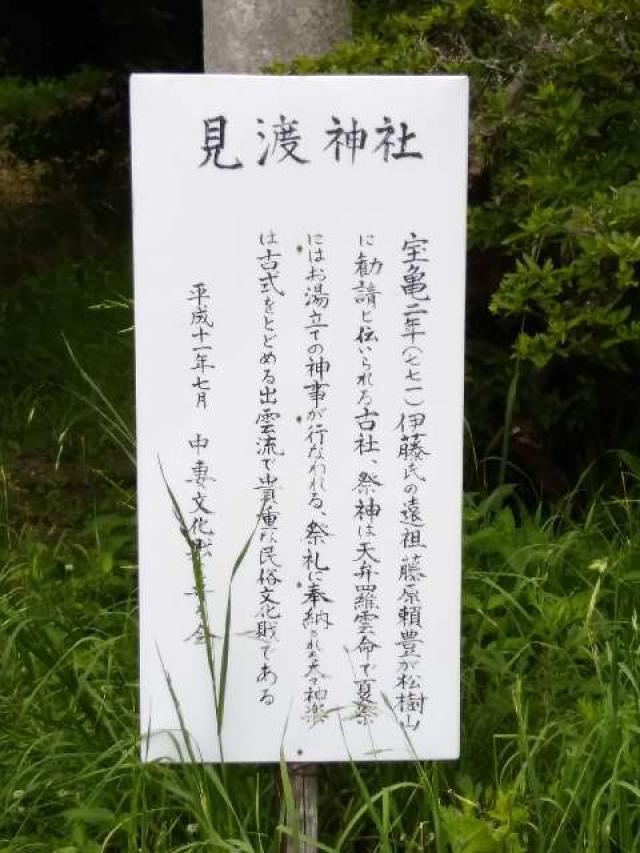 見渡神社
宝亀二年(七七一)伊藤氏の遠祖藤原頼豊が松樹山
に勧請と伝いられる古社、祭神は天弁羅雲命で夏祭
にはお湯立ての神事が行なわれる、祭礼に奉納される太々神楽
は古式をとどめる出雲流で貴重な民俗文化財である
平成十一年七月 中妻文化